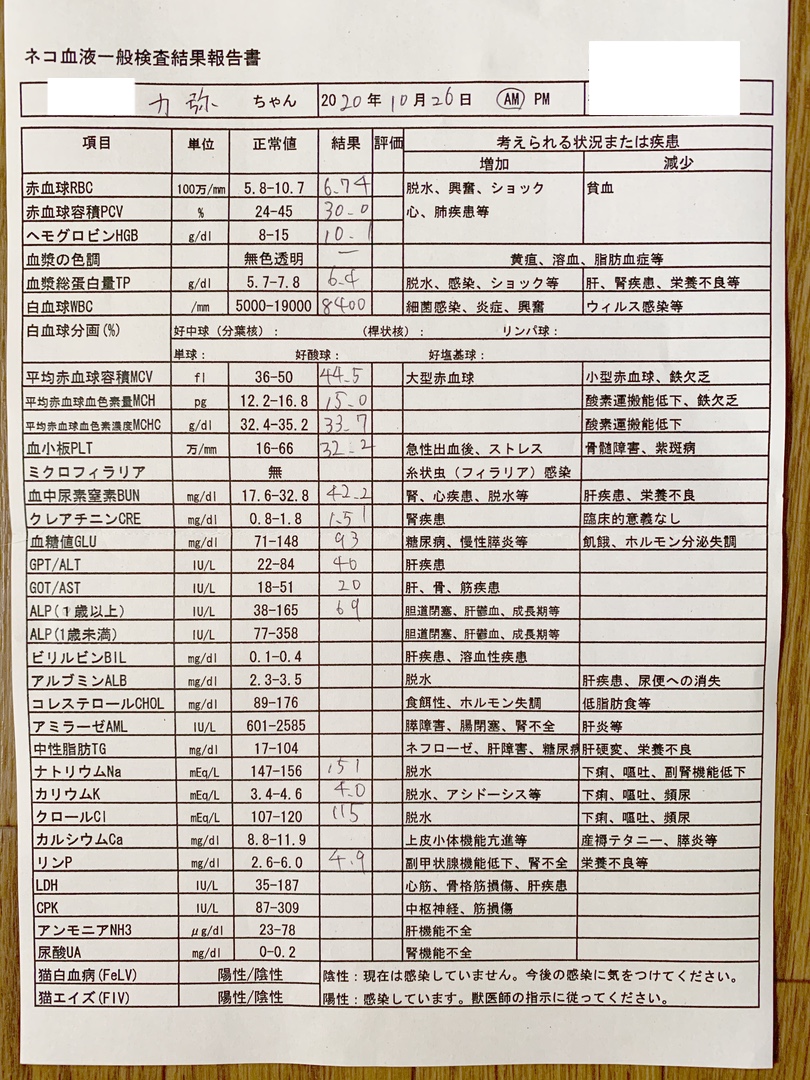 ネコ血液一般検査結果報告書
力弥 ちゃん 2020年10月26日 AM PM
項目 単位 正常値 結果 評価 考えられる状況または疾患
増加 減少
赤血球RBC 100万/mm 5.8-10.7 6.74 脱水、興奮、ショック 貧血
赤血球容積PCV % 24-45 30.0 心、肺疾患等
ヘモグロビンHGB g/dl 8-15 10.1
血漿の色調 無色透明 ー 黄疸、溶血、脂肪血症等
血漿総蛋白量TP g/dl 5.7-7.8 6.4 脱水、感染、ショック等 肝、腎疾患、栄養不良等
白血球WBC /mm 5000-19000 8400 細菌感染、炎症、興奮 ウィルス感染等
白血球分画(%) 好中球（分葉核）： （桿状核）： リンパ球：
単球： 好酸球： 好塩基球：
平均赤血球容積MCV fl 36-50 44.5 大型赤血球 小型赤血球、鉄欠乏
平均赤血球血色素量MCH pg 12.2-16.8 15.0 酸素運搬能低下、鉄欠乏
平均赤血球血色素濃度MCHC g/dl 32.4-35.2 33.7 酸素運搬能低下
血小板PLT 万/mm 16-66 32.2 急性出血後、ストレス 骨髄障害、紫斑病
ミクロフィラリア 無 糸状虫（フィラリア）感染
血中尿素窒素BUN mg/dl 17.6-32.8 42.2 腎、心疾患、脱水等 肝疾患、栄養不良
クレアチニンCRE mg/dl 0.8-1.8 1.51 腎疾患 臨床的意義なし
血糖値GLU mg/dl 71-148 93 糖尿病、慢性膵炎等 飢餓、ホルモン分泌失調
GPT/ALT IU/L 22-84 40 肝疾患
GOT/AST IU/L 18-51 20 肝、骨、筋疾患
ALP(１歳以上) IU/L 38-165 69 胆道閉塞、肝鬱血、成長期等
ALP(1歳未満) IU/L 77-358 胆道閉塞、肝鬱血、成長期等
ビリルビンBIL mg/dl 0.1-0.4 肝疾患、溶血性疾患
アルブミンALB mg/dl 2.3-3.5 脱水 肝疾患、尿便への消失
コレステロールCHOL mg/dl 89-176 食餌性、ホルモン失調 低脂肪食等
アミラーゼAML IU/L 601-2585 膵障害、腸閉塞、腎不全 肝炎等
中性脂肪TG mg/dl 17-104 ネフローゼ、肝障害、糖尿病 肝硬変、栄養不良
ナトリウムNa mEq/L 147-156 151 脱水 下痢、嘔吐、副腎機能低下
カリウムK mEq/L 3.4-4.6 4.0 脱水、アシドーシス等 下痢、嘔吐、頻尿
クロールCl mEq/L 107-120 115 脱水 下痢、嘔吐、頻尿
カルシウムCa mg/dl 8.8-11.9 上皮小体機能亢進等 産褥テタニー、膵炎等
リンP mg/dl 2.6-6.0 4.9 副甲状腺機能低下、腎不全 栄養不良等
LDH IU/L 35-187 心筋、骨格筋損傷、肝疾患
CPK IU/L 87-309 中枢神経、筋損傷
アンモニアNH3 μg/dl 23-78 肝機能不全
尿酸UA mg/dl 0-0.2 腎機能不全
猫白血病(FeLV) 陽性/陰性 陰性：現在は感染していません。今後の感染に気をつけてください。
猫エイズ(FIV) 陽性/陰性 陽性：感染しています。獣医師の指示に従ってください。